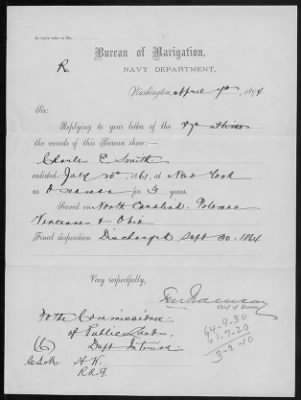 Bureau of Navigation,
R
NAVY DEPARTMENT,
Washington, April 9th, 1894
Sir:
Replying to your letter of the
the records of this Bureau show:
Charles E Smith
enlisted July 20th, 1861, at New York
as Seaman for 3 years.
Served on North Carolina. Potomac
Vincennes & Ohio
Final disposition Discharged Sept 30. 1864
Very respectfully,
Chief of Bureau
64-9-30
61-7-20
3-2-10
To the Commissioner
of Public Lands.
(6) Dept Interior
A.W.